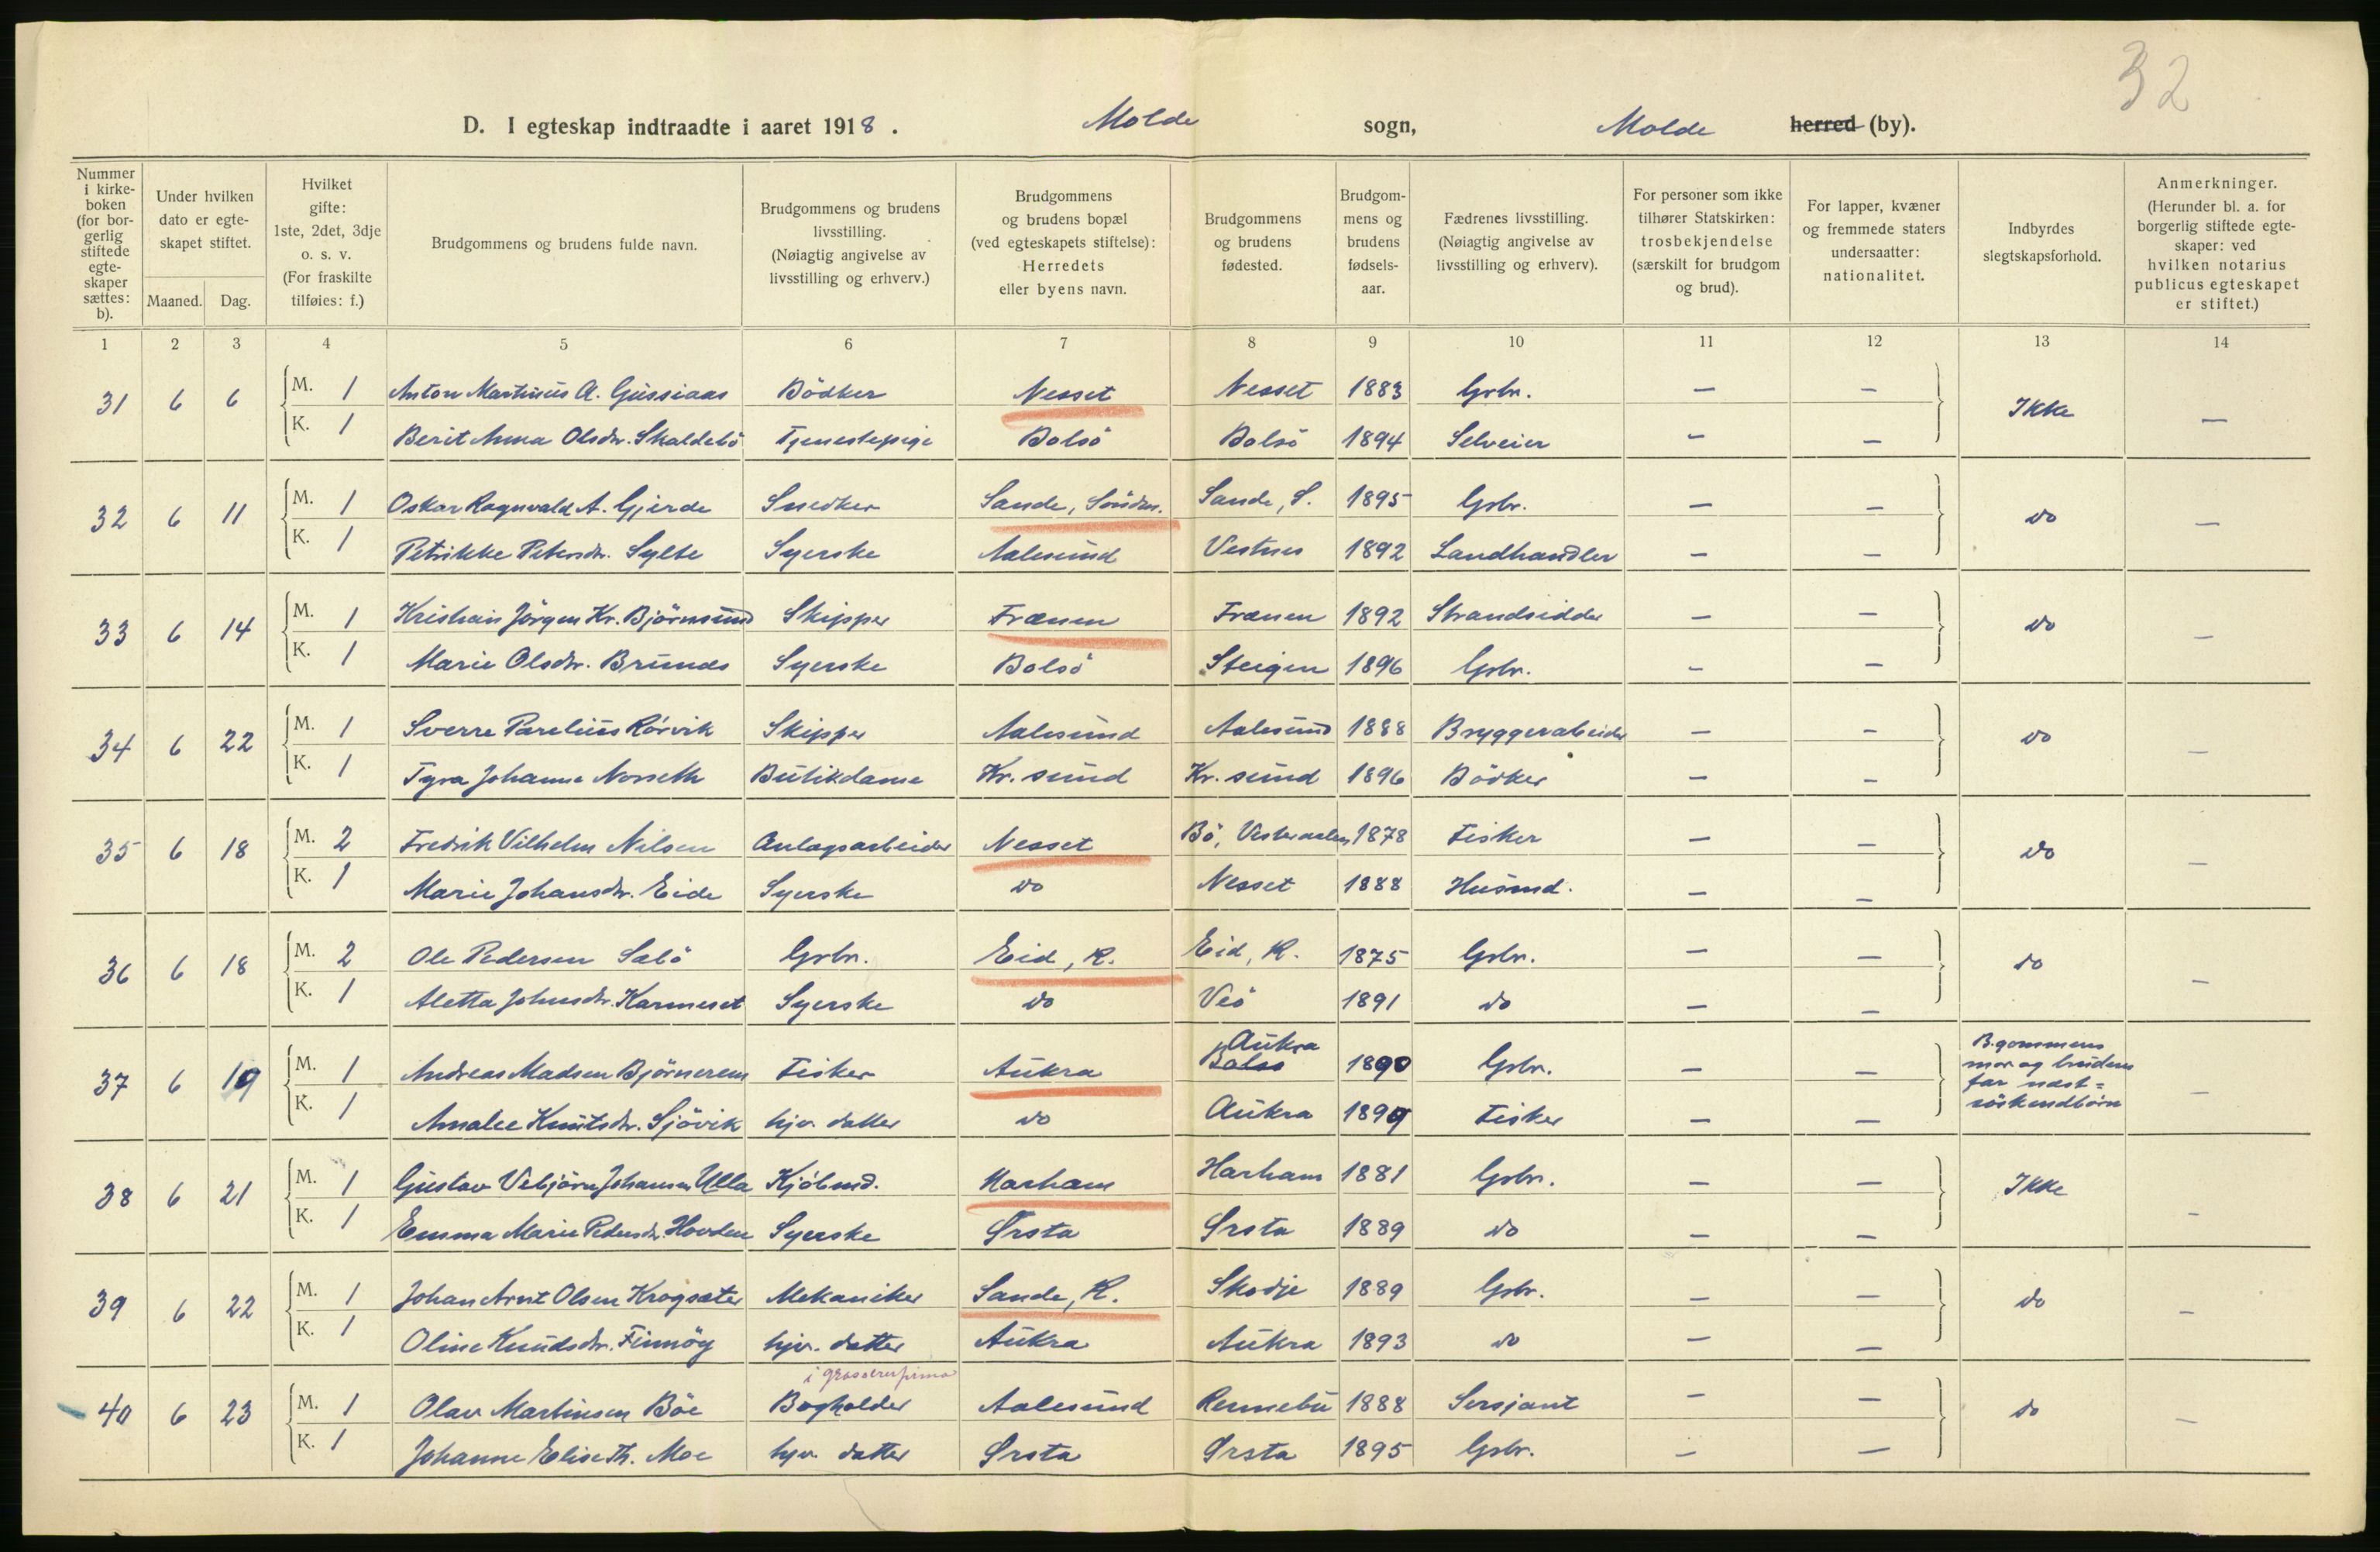 32
D. I egteskap indtraadte i aaret 1918. Molde sogn, Molde herred (by).
Nummer i kirkeboken (for borgerlig stiftede egteskaper sættes: b). | Under hvilken dato er egteskapet stiftet. Maaned. | Dag. | Hvilket gifte: 1ste, 2det, 3dje o. s. v. (For fraskilte tilføies: f.) | Brudgommens og brudens fulde navn. | Brudgommens og brudens livsstilling. (Nøiagtig angivelse av livsstilling og erhverv.) | Brudgommens og brudens bopæl (ved egteskapets stiftelse): Herredets eller byens navn. | Brudgommens og brudens fødested. | Brudgommens og brudens fødselsaar. | Fædrenes livsstilling. (Nøiagtig angivelse av livsstilling og erhverv). | For personer som ikke tilhører Statskirken: trosbekjendelse (særskilt for brudgom og brud). | For lapper, kvæner og fremmede staters undersaatter: nationalitet. | Indbyrdes slegtskapsforhold. | Anmerkninger. (Herunder bl. a. for borgerlig stiftede egteskaper: ved hvilken notarius publicus egteskapet er stiftet.)
1 2 3 4 5 6 7 8 9 10 11 12 13 14
31 6 6 M. 1 Anton Martinus A. Gussiaas Bödker Nesset Nesset 1883 Grbr. — — Ikke —
K. 1 Berit Anna Olsdtr. Skaldebö Tjenestepige Bolsö Bolsö 1894 Selveier — —
32 6 11 M. 1 Oskar Ragnvald A. Gjerde Snedker Sande, Söndm. Sande, S. 1895 Grbr. — — do —
K. 1 Petrikke Petersdtr. Sylte Syerske Aalesund Vestnes 1892 Landhandler — —
33 6 14 M. 1 Kristian Jörgen Kr. Björnsund Skipper Frænen Frænen 1892 Strandsidder — — do —
K. 1 Marie Olsdtr. Brunaas Syerske Bolsö Steigen 1896 Grbr. — —
34 6 22 M. 1 Sverre Parelius Rörvik Skipper Aalesund Aalesund 1888 Bryggerarbeider — — do —
K. 1 Tyra Johanne Norseth Butikdame Kr. sund Kr. sund 1896 Bödker — —
35 6 18 M. 2 Fredrik Vilhelm Nilsen Anlægsarbeider Nesset Bö, Vesteraalen 1878 Fisker — — do —
K. 1 Marie Johansdtr. Eide Syerske do Nesset 1888 Husmd. — —
36 6 18 M. 2 Ole Pedersen Salö Grbr. Eid, R. Eid, R. 1875 Grbr. — — do —
K. 1 Aletta Johnsdtr. Karmeset Syerske do Veö 1891 do — —
37 6 19 M. 1 Andreas Madsen Björnerem Fisker Aukra Aukra Bolsö 1890 Grbr. — — B.gommens mor og brudens far næst= söskendbörn —
K. 1 Amalie Knutsdtr. Sjövik hjv. datter do Aukra 1899 Fisker — —
38 6 21 M. 1 Gustav Vebjörn Johansen Ulla Kjöbmd. Harham Harham 1881 Grbr. — — Ikke —
K. 1 Emma Marie Pedersdtr. Hovden Syerske Ørsta Ørsta 1889 do — —
39 6 22 M. 1 Johan Arnt Olsen Krogsæter Mekaniker Sande, R. Skodje 1889 Grbr. — — do —
K. 1 Oline Knudsdtr. Finnöy hjv. datter Aukra Aukra 1893 do — —
i grossererfirma
40 6 23 M. 1 Olav Martinsen Böe Bogholder Aalesund Rennebu 1888 Sersjant — — do —
K. 1 Johanne Elise Th. Moe hjv. datter Ørsta Ørsta 1895 Grbr. — —